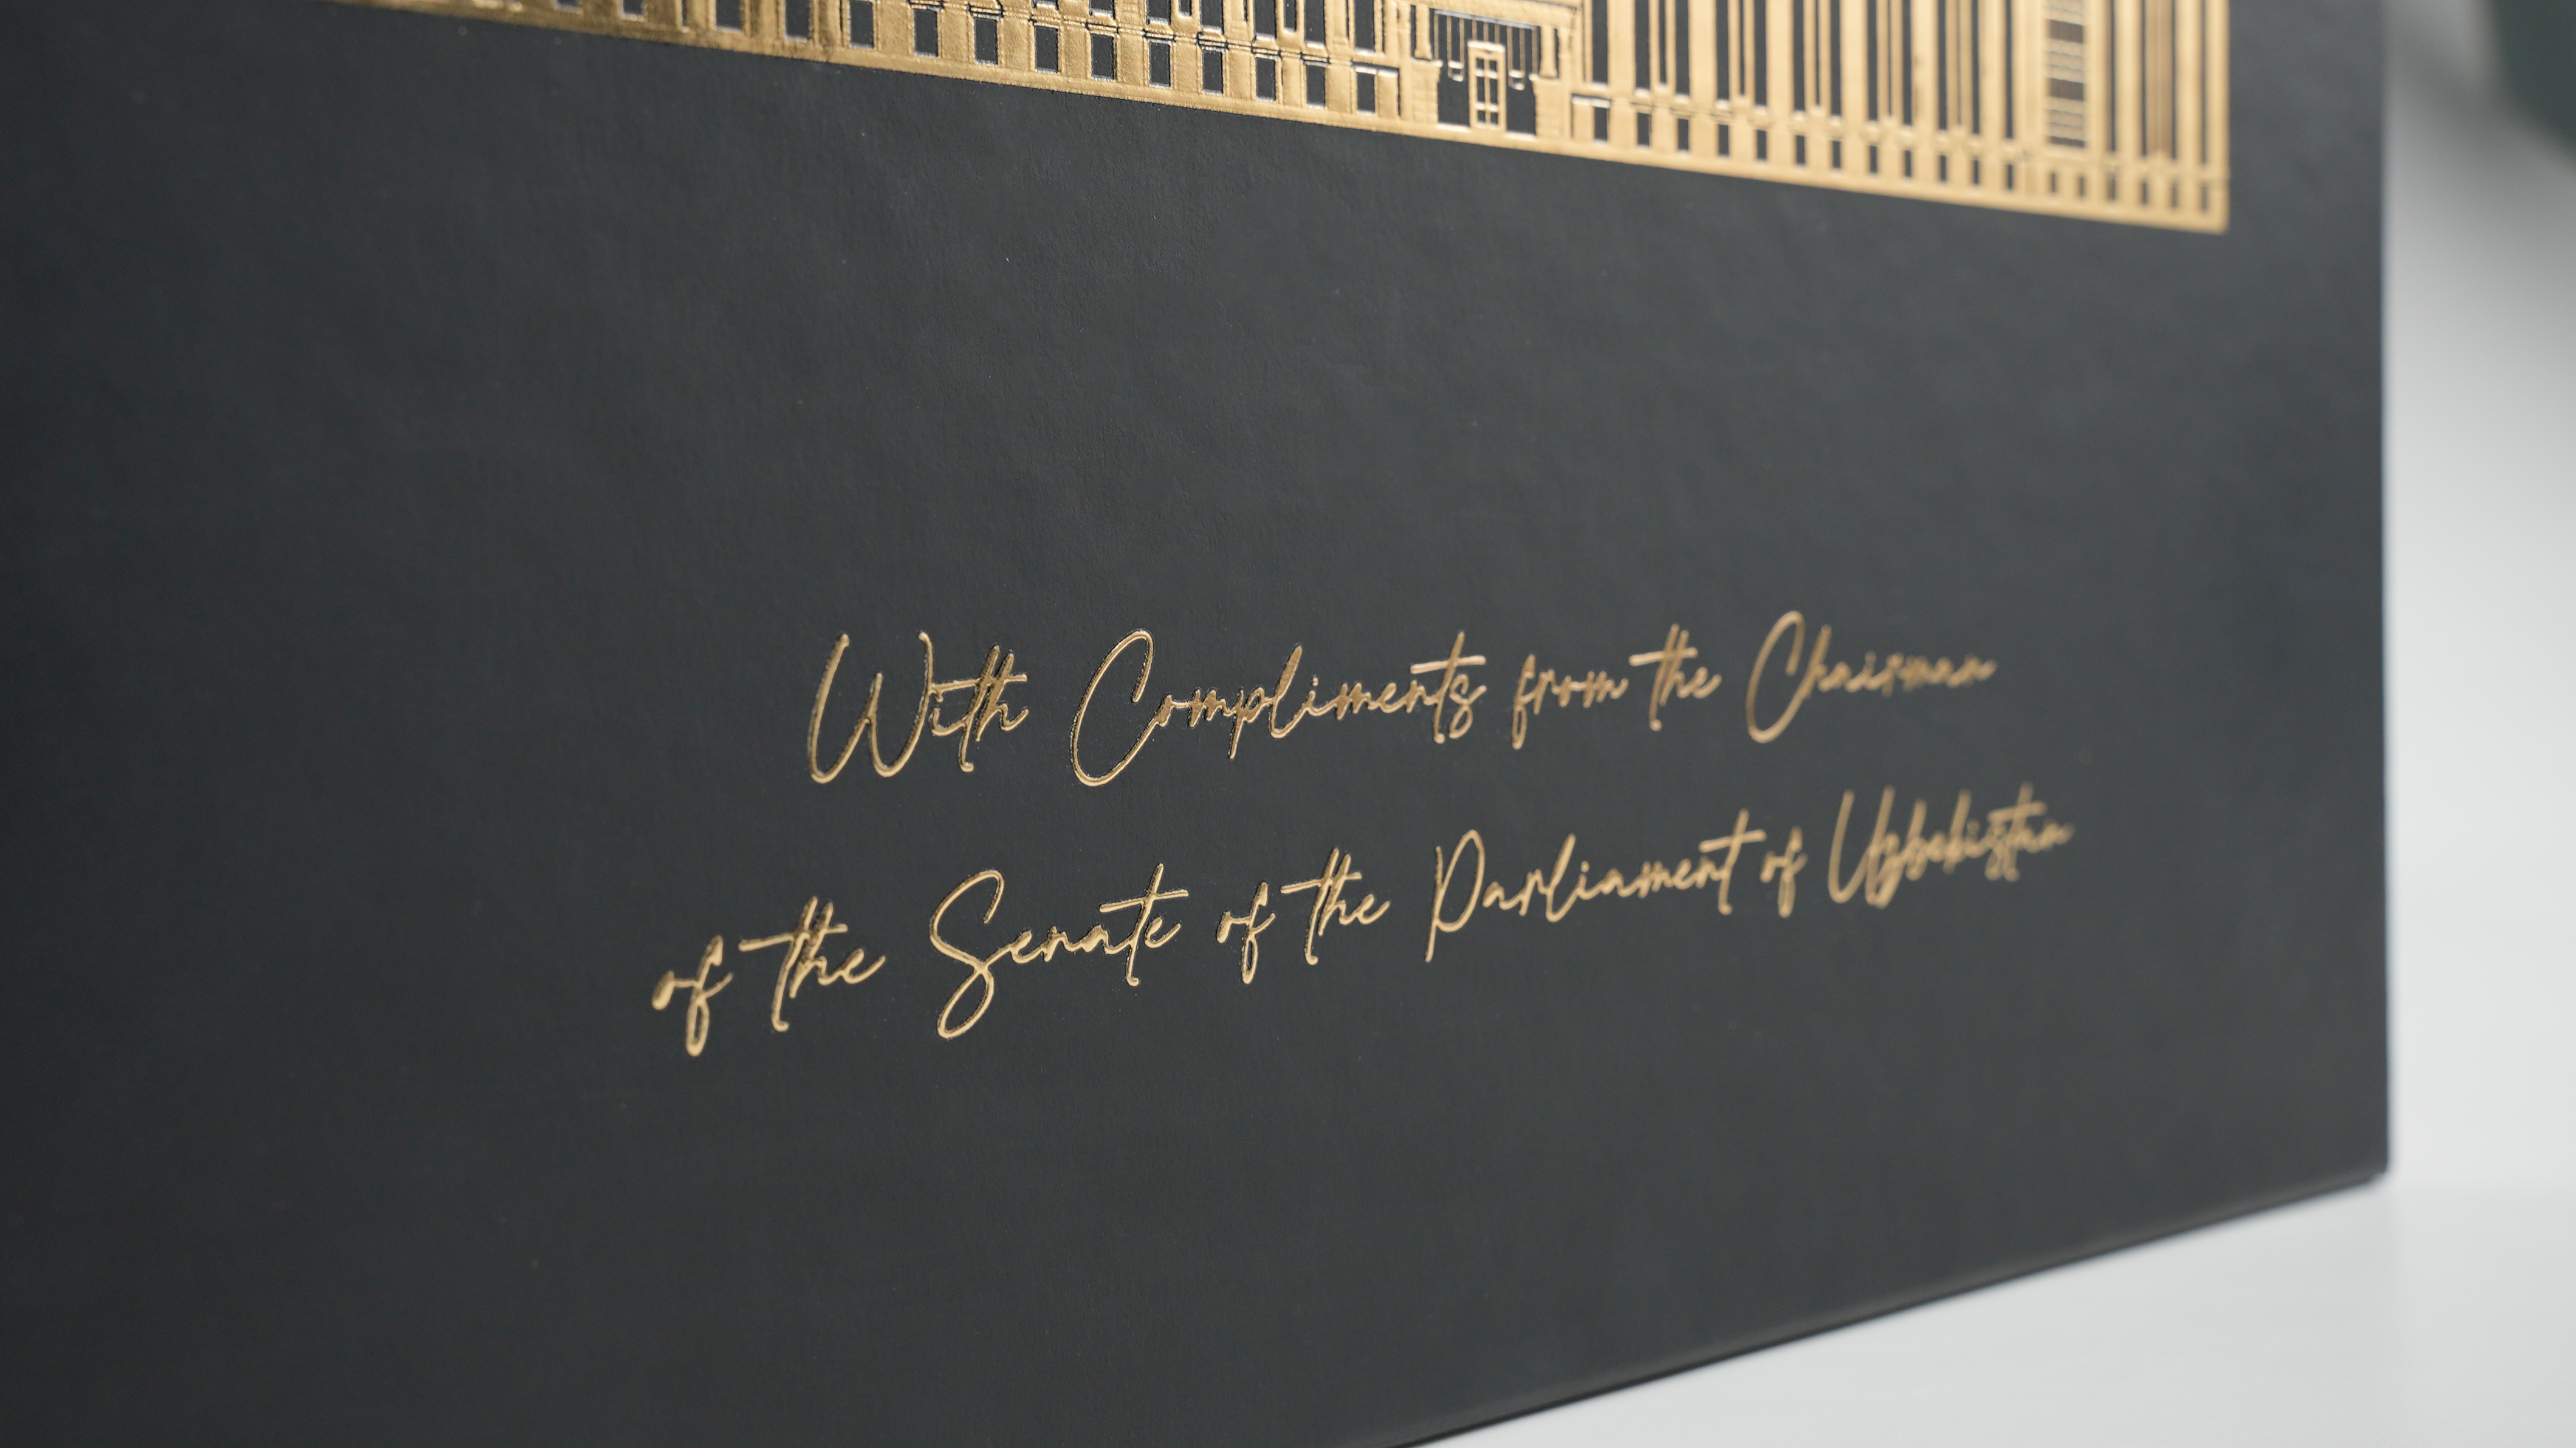 With Compliments from the Chairman
of the Senate of the Parliament of Uzbekistan